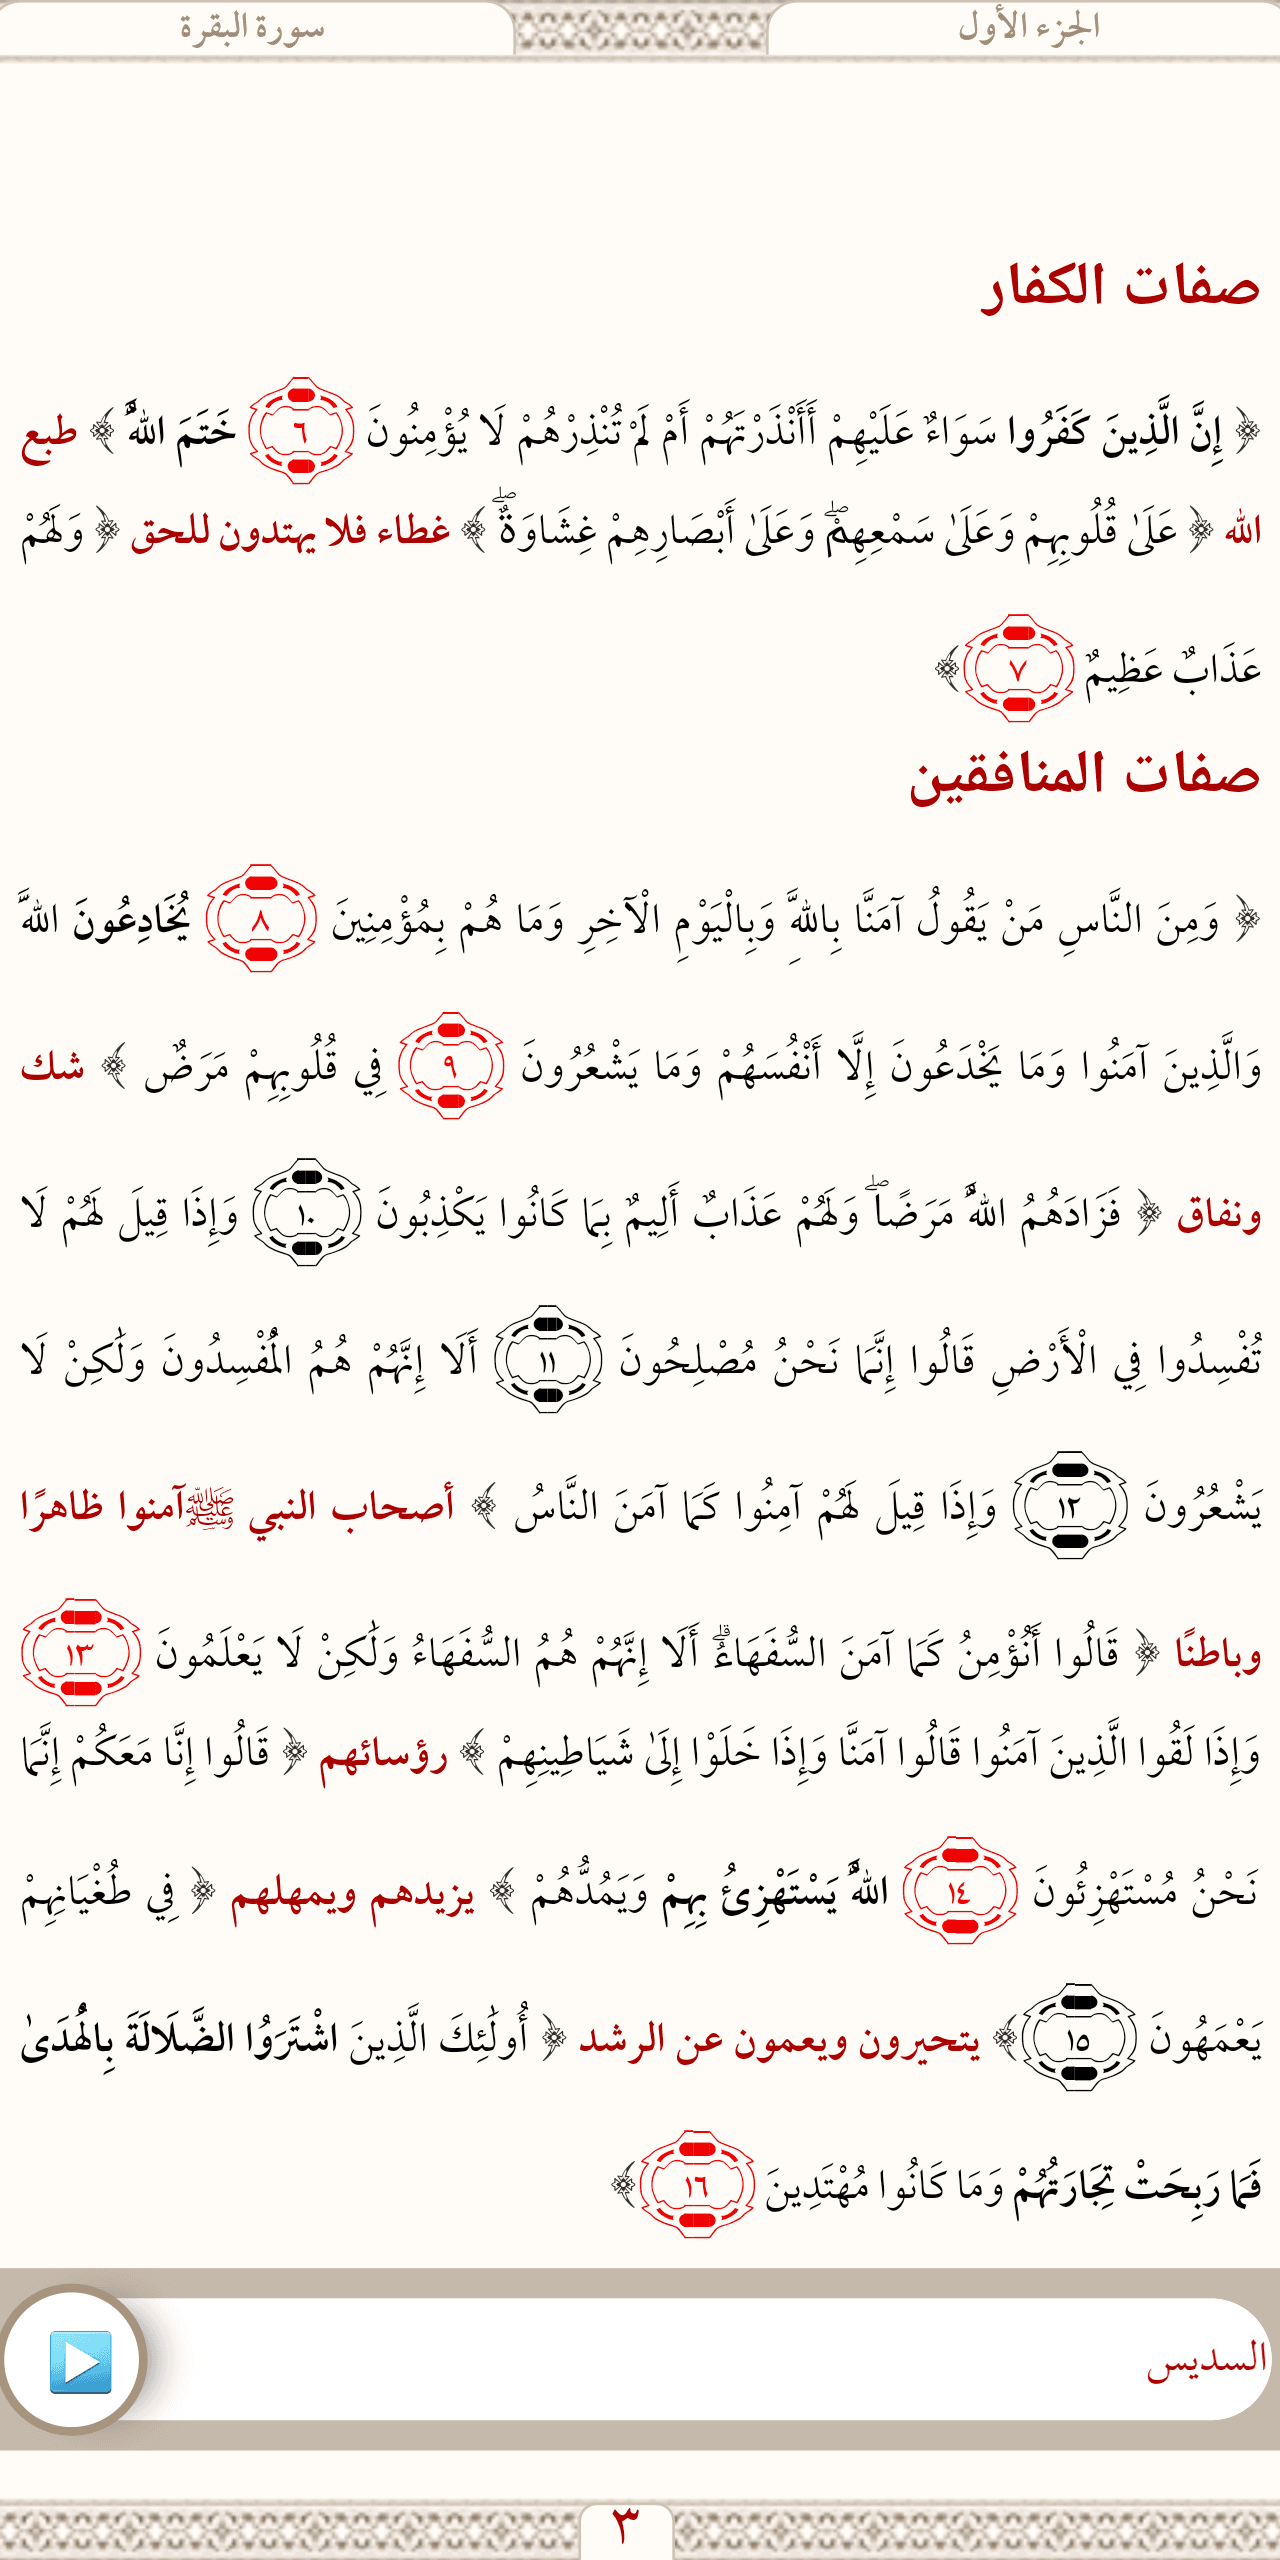 الجزء الأول
سورة البقرة
صفات الكفار
﴿ إِنَّ الَّذِينَ كَفَرُوا سَوَاءٌ عَلَيْهِمْ أَأَنْذَرْتَهُمْ أَمْ لَمْ تُنْذِرْهُمْ لَا يُؤْمِنُونَ ٦ خَتَمَ اللهُ ﴾ طبع
الله ﴿ عَلَىٰ قُلُوبِهِمْ وَعَلَىٰ سَمْعِهِمْۖ وَعَلَىٰ أَبْصَارِهِمْ غِشَاوَةٌۖ ﴾ غطاء فلا يهتدون للحق ﴿ وَلَهُمْ
عَذَابٌ عَظِيمٌ ٧ ﴾
صفات المنافقين
﴿ وَمِنَ النَّاسِ مَنْ يَقُولُ آمَنَّا بِاللهِ وَبِالْيَوْمِ الْآخِرِ وَمَا هُمْ بِمُؤْمِنِينَ ٨ يُخَادِعُونَ اللهَ
وَالَّذِينَ آمَنُوا وَمَا يَخْدَعُونَ إِلَّا أَنْفُسَهُمْ وَمَا يَشْعُرُونَ ٩ فِي قُلُوبِهِمْ مَرَضٌ ﴾ شك
ونفاق ﴿ فَزَادَهُمُ اللهُ مَرَضًاۖ وَلَهُمْ عَذَابٌ أَلِيمٌ بِمَا كَانُوا يَكْذِبُونَ ١٠ وَإِذَا قِيلَ لَهُمْ لَا
تُفْسِدُوا فِي الْأَرْضِ قَالُوا إِنَّمَا نَحْنُ مُصْلِحُونَ ١١ أَلَا إِنَّهُمْ هُمُ الْمُفْسِدُونَ وَلَٰكِنْ لَا
يَشْعُرُونَ ١٢ وَإِذَا قِيلَ لَهُمْ آمِنُوا كَمَا آمَنَ النَّاسُ ﴾ أصحاب النبي ﷺ آمنوا ظاهرًا
وباطنًا ﴿ قَالُوا أَنُؤْمِنُ كَمَا آمَنَ السُّفَهَاءُۗ أَلَا إِنَّهُمْ هُمُ السُّفَهَاءُ وَلَٰكِنْ لَا يَعْلَمُونَ ١٣
وَإِذَا لَقُوا الَّذِينَ آمَنُوا قَالُوا آمَنَّا وَإِذَا خَلَوْا إِلَىٰ شَيَاطِينِهِمْ ﴾ رؤسائهم ﴿ قَالُوا إِنَّا مَعَكُمْ إِنَّمَا
نَحْنُ مُسْتَهْزِئُونَ ١٤ اللهُ يَسْتَهْزِئُ بِهِمْ وَيَمُدُّهُمْ ﴾ يزيدهم ويمهلهم ﴿ فِي طُغْيَانِهِمْ
يَعْمَهُونَ ١٥ ﴾ يتحيرون ويعمون عن الرشد ﴿ أُولَٰئِكَ الَّذِينَ اشْتَرَوُا الضَّلَالَةَ بِالْهُدَىٰ
فَمَا رَبِحَتْ تِجَارَتُهُمْ وَمَا كَانُوا مُهْتَدِينَ ١٦ ﴾
السديس
٣